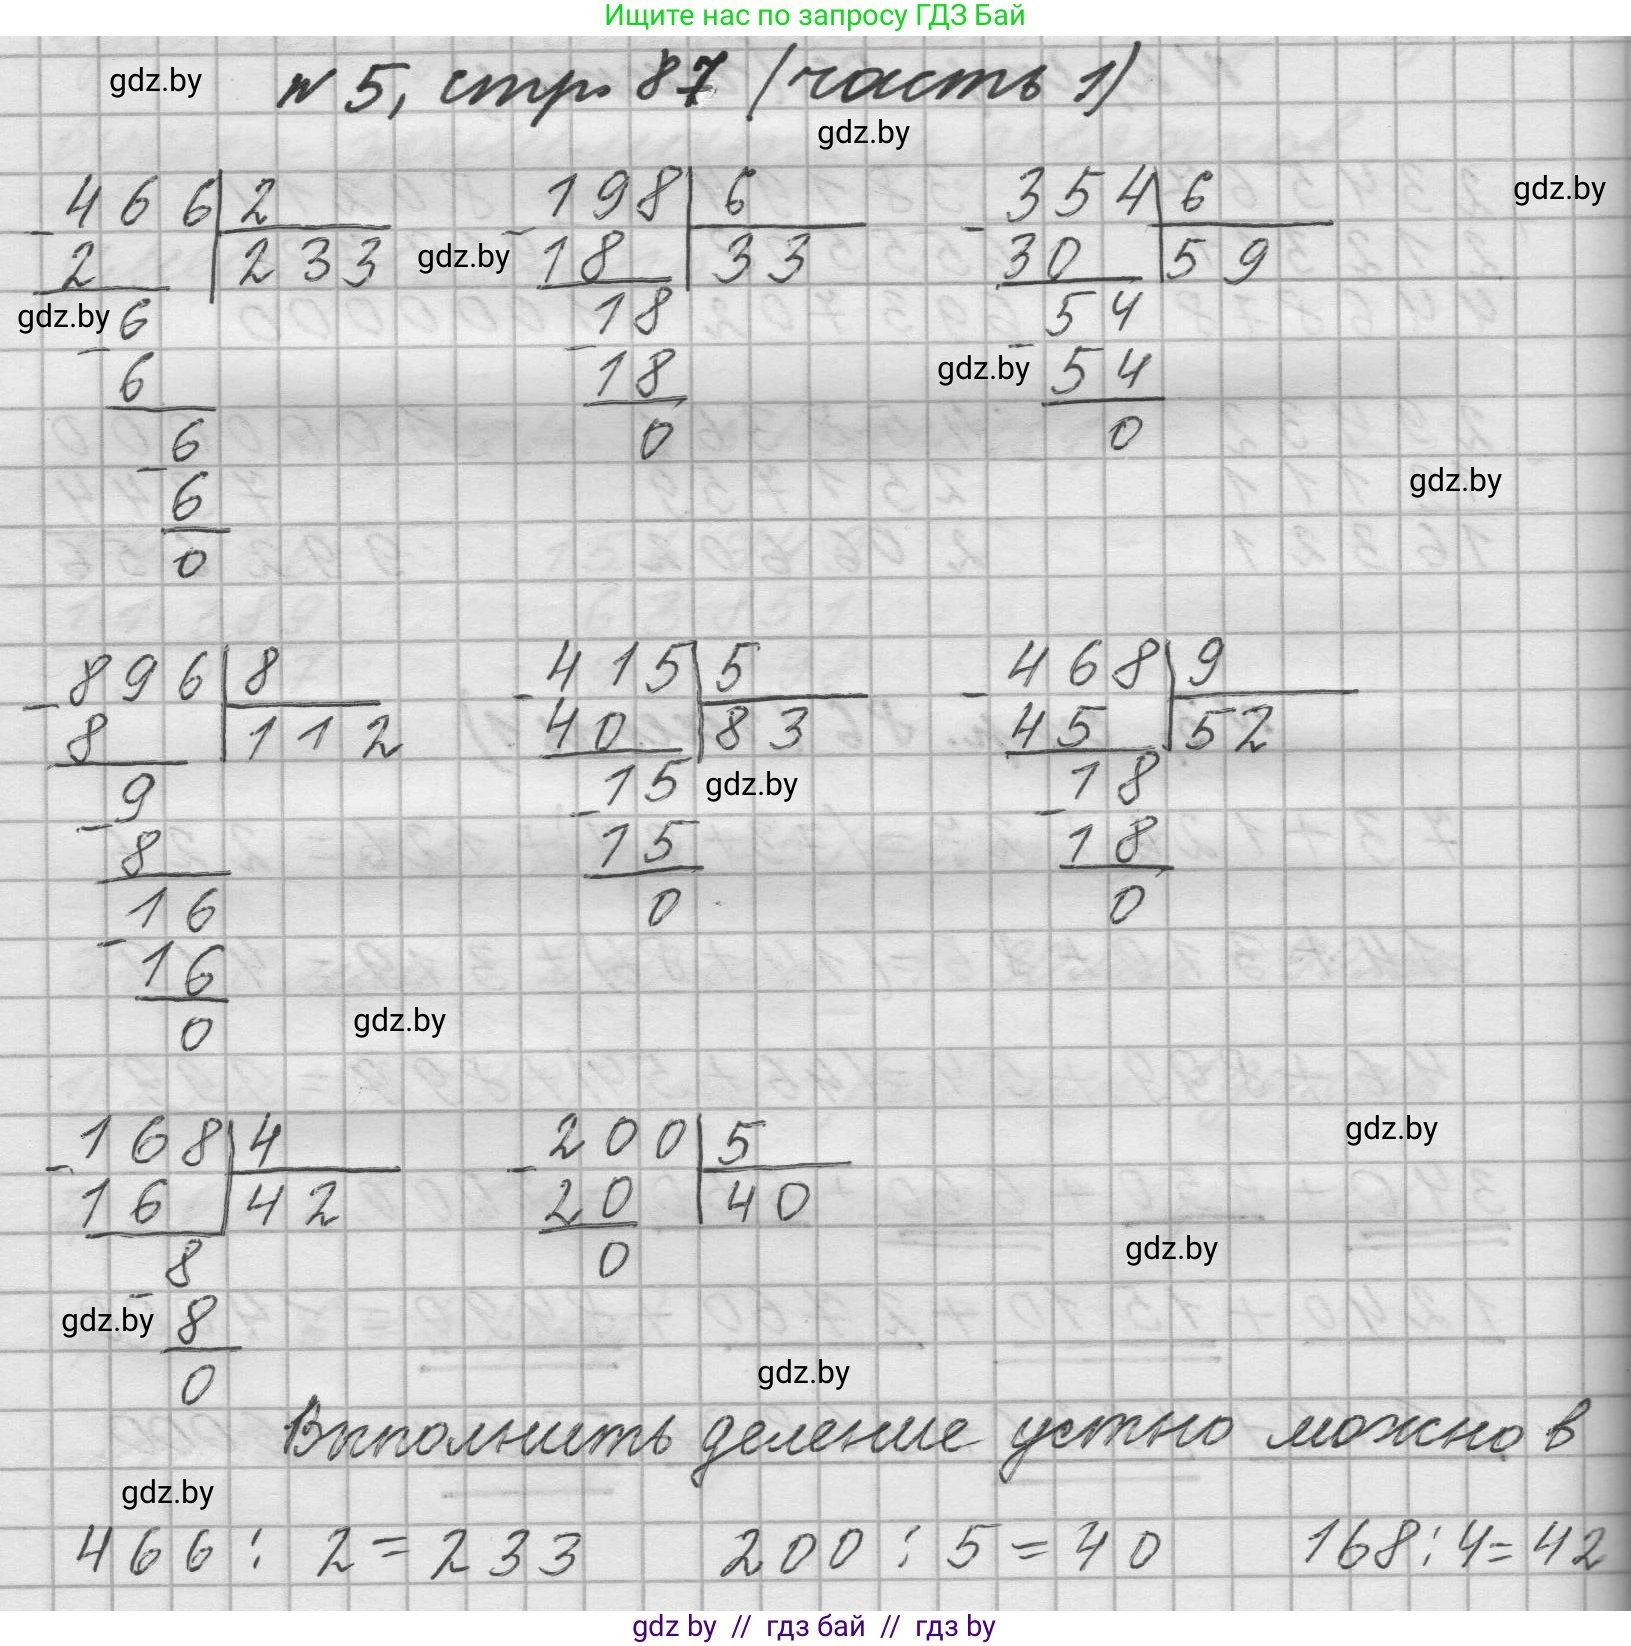 Ищите нас по запросу ГДЗ Бай
gdz.by
N 5, стр. 87 (часть 1)
gdz.by
466 2 198 6 354 6
gdz.by
- 2 233 - 18 33 - 30 59
gdz.by
gdz.by
6 18 54
- 6 - 18 - 54
gdz.by
6 0 0
- 6
gdz.by
0
896 8 415 5 468 9
- 8 112 - 40 83 - 45 52
9 15 18
gdz.by
- 8 - 15 - 18
16 0 0
- 16
0
gdz.by
168 4 200 5
gdz.by
- 16 42 - 20 40
8 0
gdz.by
- 8
gdz.by
0
gdz.by
Выполнить деление устно можно в
gdz.by
466 : 2 = 233 200 : 5 = 40 168 : 4 = 42
gdz by // гдз бай // гдз by